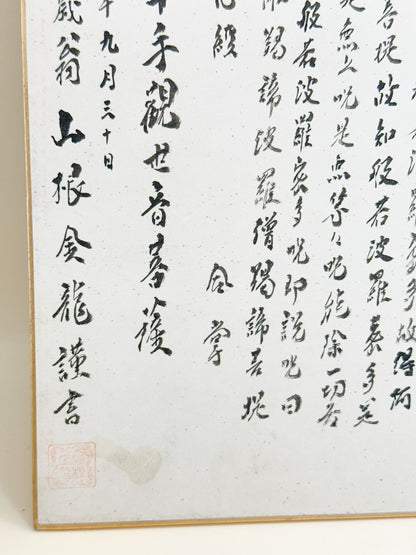 多故得阿
菩提故知般若波羅蜜多是
是無上呪是無等々呪能除一切苦
般若波羅蜜多呪即説呪曰
羯諦波羅僧羯諦菩提
合掌
手観世音菩薩
九月三十日
歳翁 山根金龍謹書